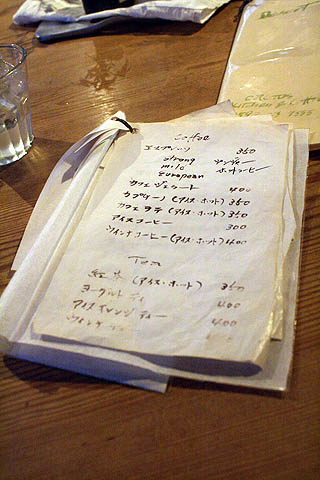 Coffee
エスプレッソ 350
strong
mild ホットコーヒー
European
カフェジェラート 400
カプチーノ (アイス・ホット) 350
カフェラテ (アイス・ホット) 350
アイスコーヒー 300
ウインナコーヒー (アイス・ホット) 400
Tea
紅茶 (アイス・ホット) 350
ヨーグルトティ 400
アイスオレンジティー 400
400